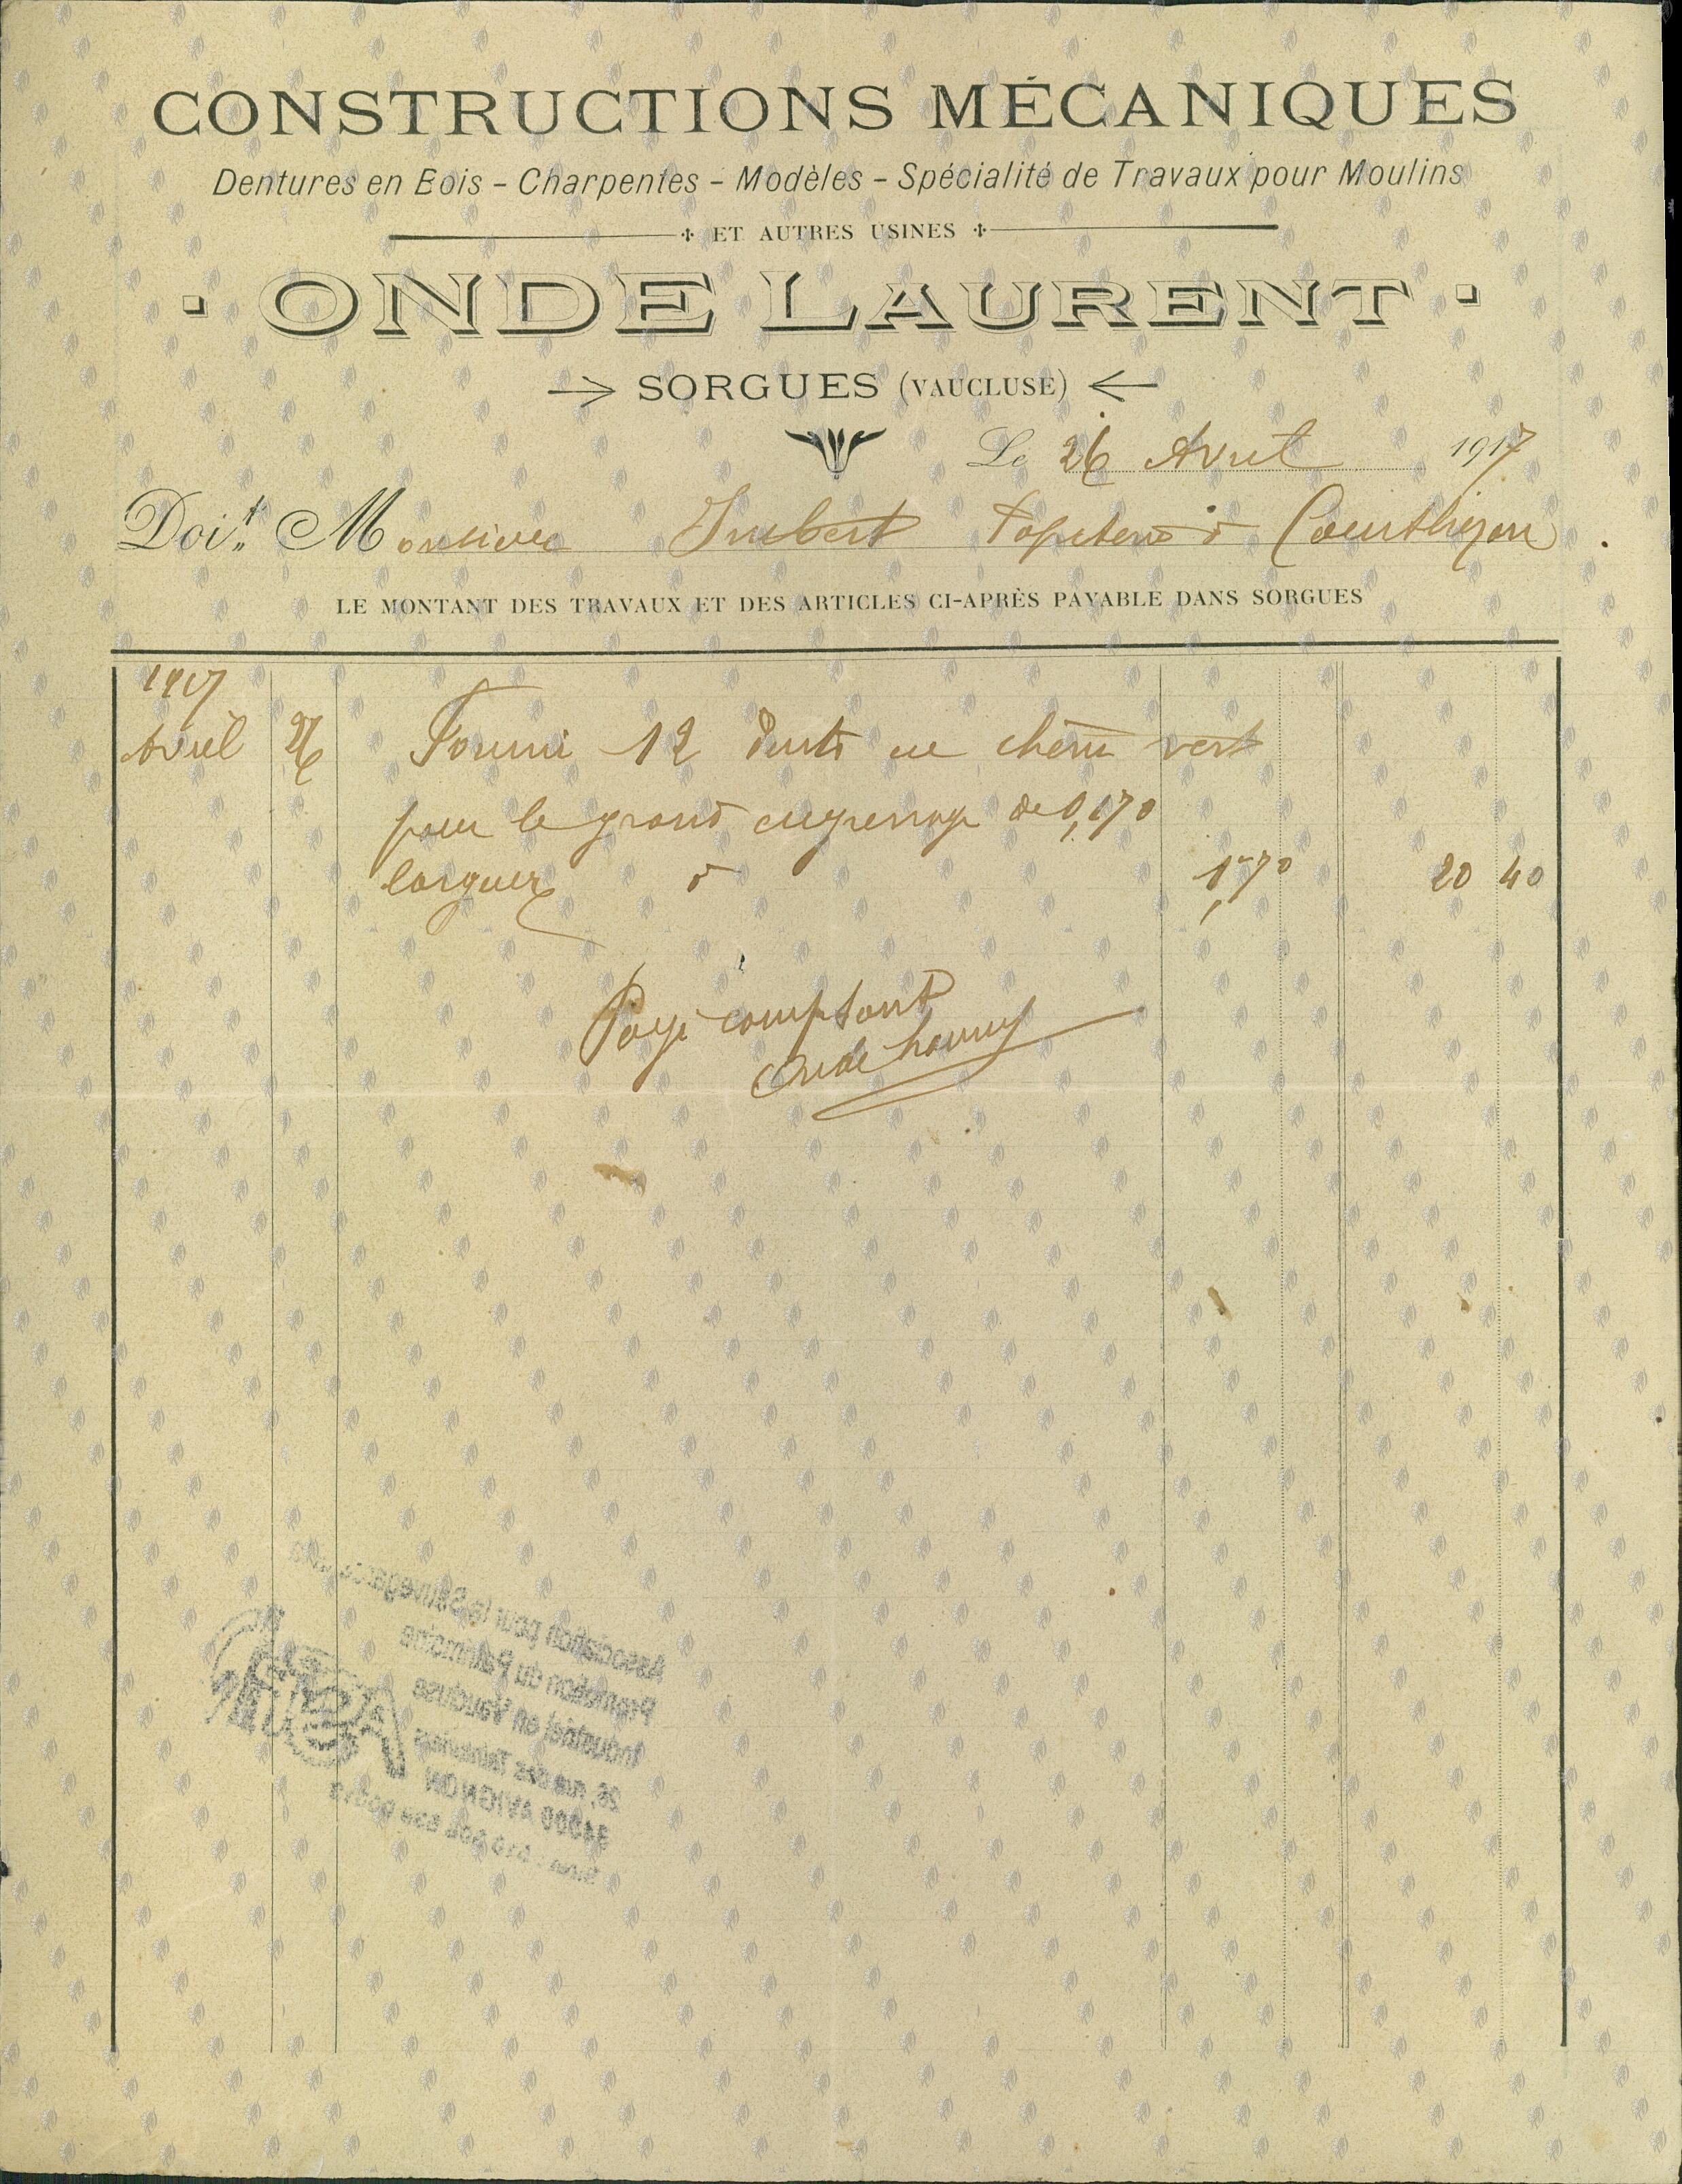 CONSTRUCTIONS MÉCANIQUES
Dentures en Bois - Charpentes - Modèles - Spécialité de Travaux pour Moulins
ET AUTRES USINES
ONDE LAURENT
SORGUES (VAUCLUSE)
Le 26 Avril 1917
Doit Monsieur Imbert à Courthezon
LE MONTANT DES TRAVAUX ET DES ARTICLES CI-APRÈS PAYABLE DANS SORGUES
1917
Avril 26 Fourni 12 dents en chêne vert
pour le grand engrenage de 0,170
largueur à 1,70 20 40
Payé comptant
Onde
Association pour la Sauvegarde
Promotion du Patrimoine
Industriel en Vaucluse
26, rue des Teinturiers
84000 AVIGNON